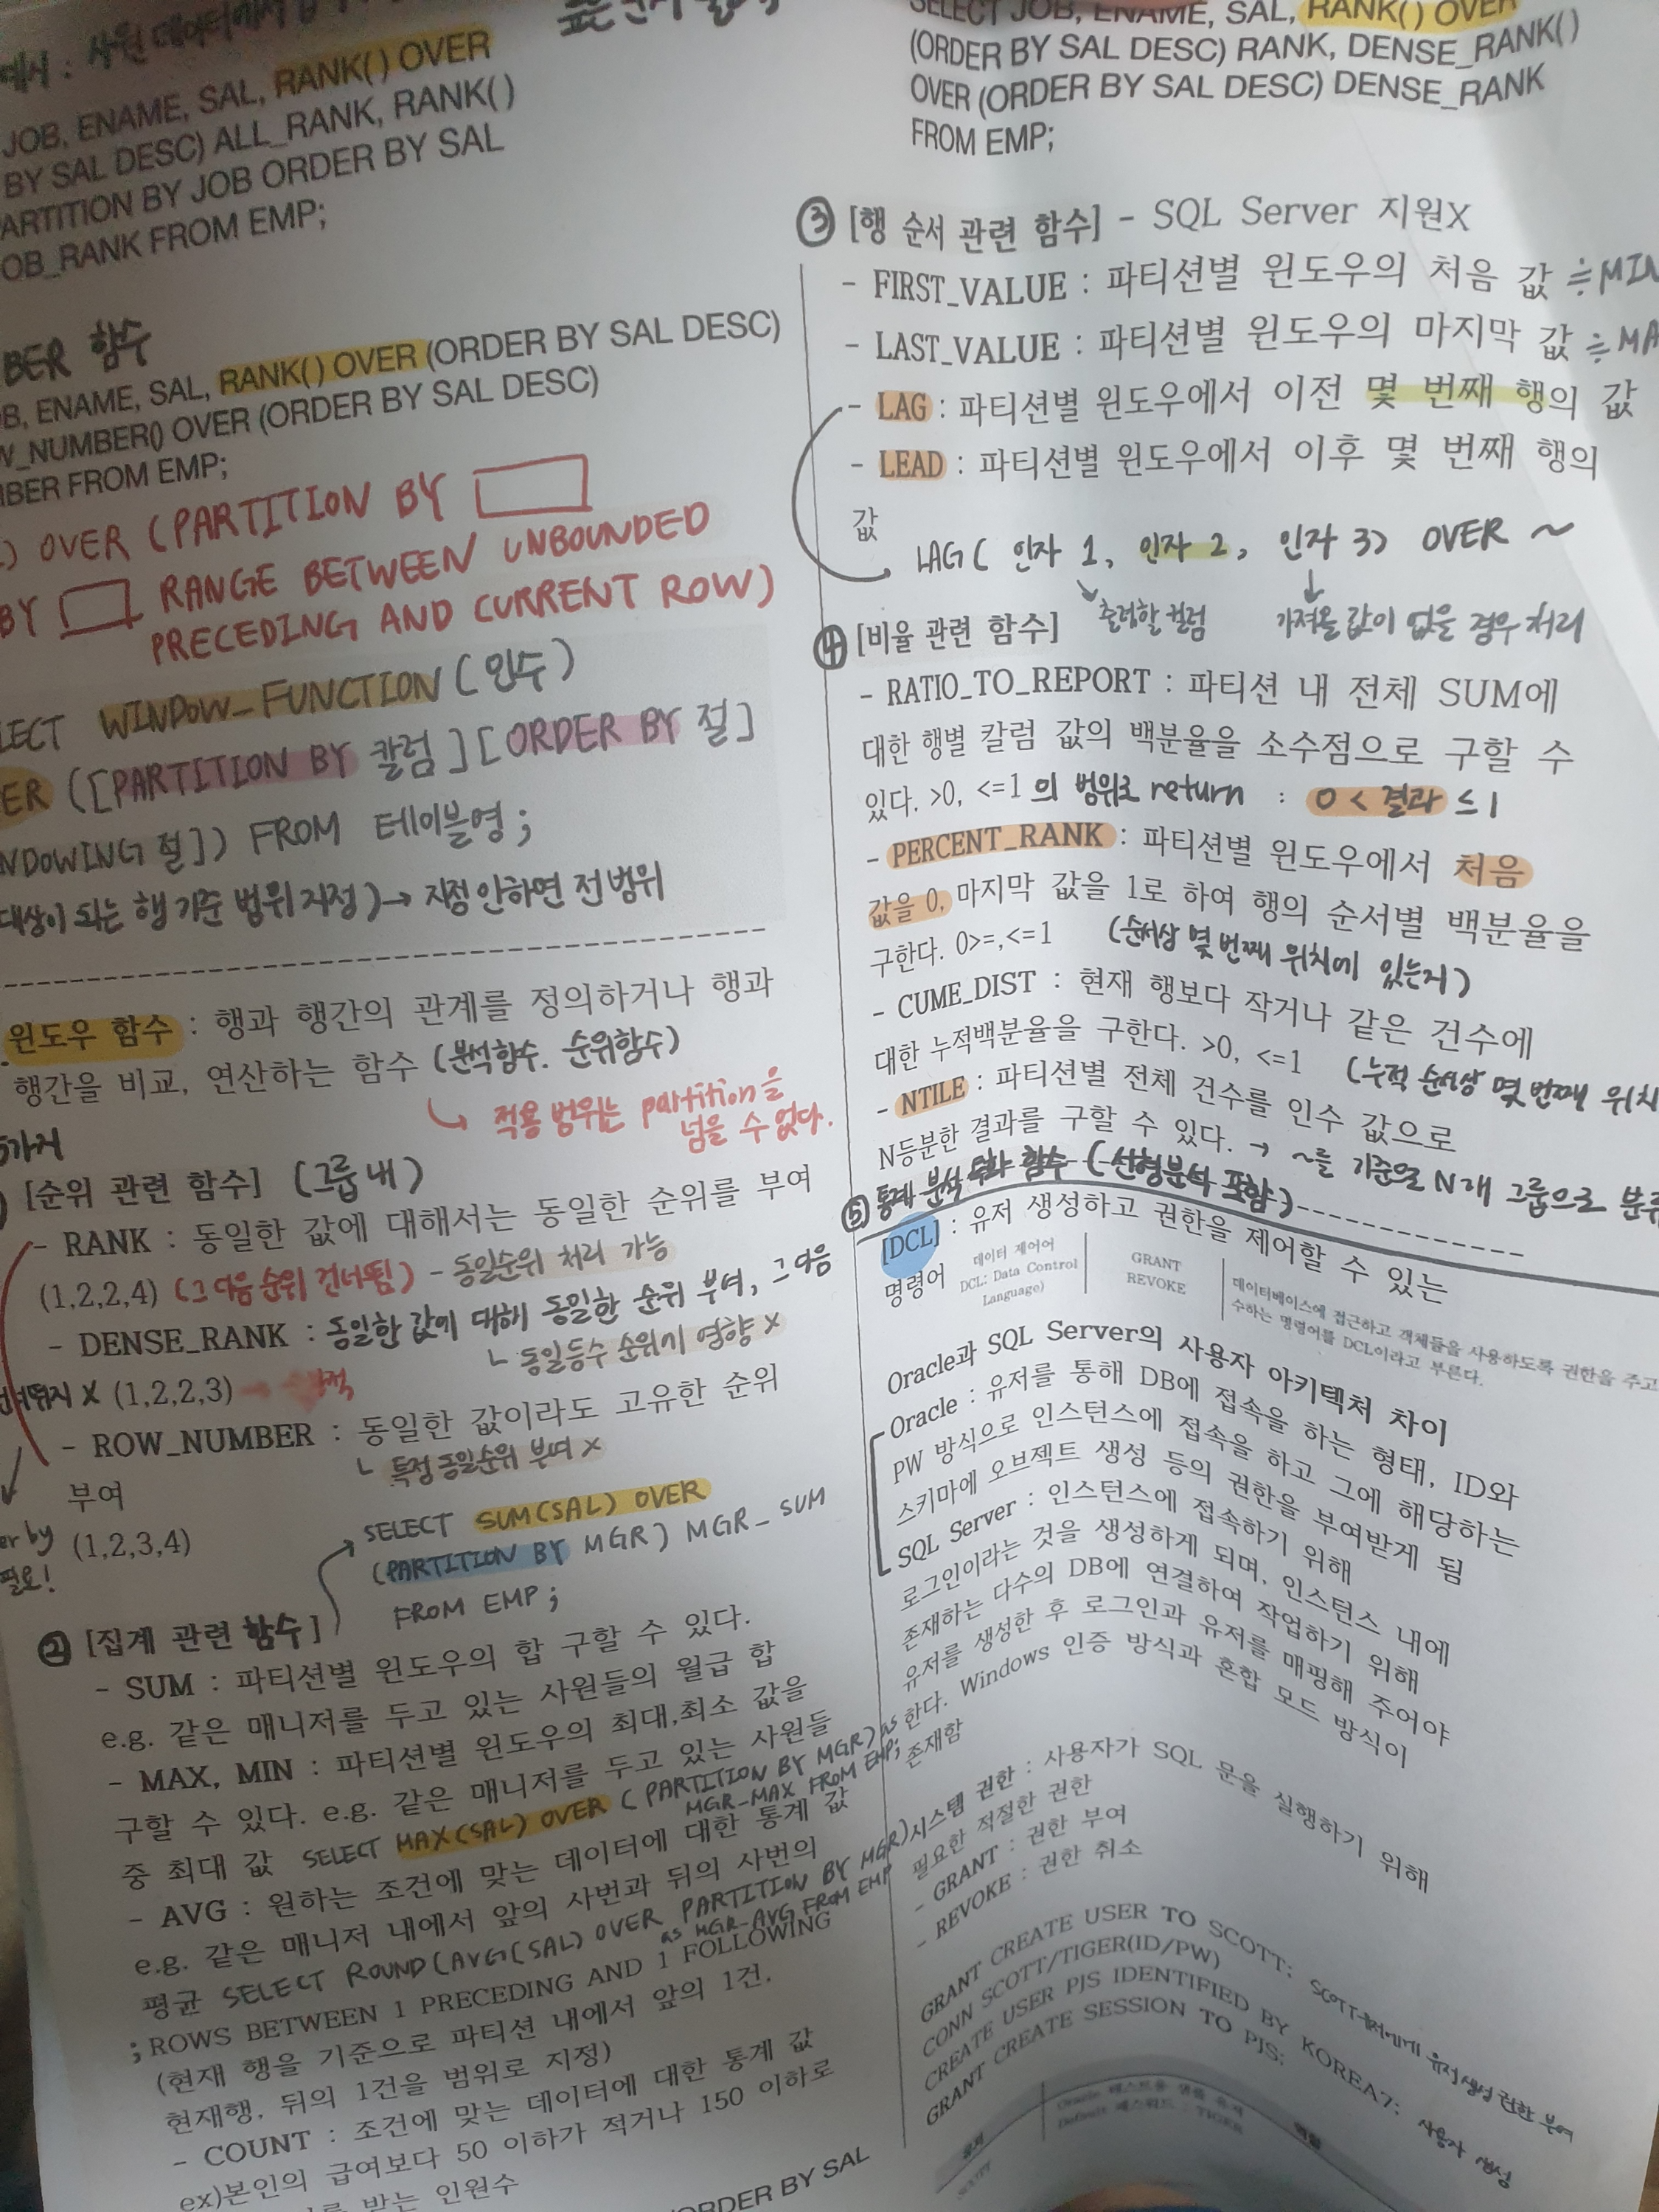 예시 : 사원 데이터에서
JOB, ENAME, SAL, RANK( ) OVER
BY SAL DESC) ALL_RANK, RANK( )
PARTITION BY JOB ORDER BY SAL
JOB_RANK FROM EMP;
함수
ENAME, SAL, RANK( ) OVER (ORDER BY SAL DESC)
OVER (ORDER BY SAL DESC)
FROM EMP;
) OVER (PARTITION BY
BY RANGE BETWEEN UNBOUNDED
PRECEDING AND CURRENT ROW)
WINDOW_FUNCTION (인수)
([PARTITION BY 칼럼][ORDER BY 절]
절]) FROM 테이블명;
대상이 되는 행 기준 범위 지정) → 지정 안하면 전 범위
윈도우 함수 : 행과 행간의 관계를 정의하거나 행과
행간을 비교, 연산하는 함수 (분석함수. 순위함수)
↳ 적용 범위는 partition을
넘을 수 없다.
5가지
[순위 관련 함수] (그룹 내)
- RANK : 동일한 값에 대해서는 동일한 순위를 부여
(1,2,2,4) (그 다음 순위 건너뜀) - 동일순위 처리 가능
- DENSE_RANK : 동일한 값에 대해 동일한 순위 부여, 그 다음
└ 동일등수 순위에 영향 X
X (1,2,2,3)
- ROW_NUMBER : 동일한 값이라도 고유한 순위
└ 특정 동일순위 부여 X
부여
(1,2,3,4)
필요!
SELECT SUM(SAL) OVER
(PARTITION BY MGR) MGR_SUM
FROM EMP;
② [집계 관련 함수]
- SUM : 파티션별 윈도우의 합 구할 수 있다.
e.g. 같은 매니저를 두고 있는 사원들의 월급 합
- MAX, MIN : 파티션별 윈도우의 최대,최소 값을
구할 수 있다. e.g. 같은 매니저를 두고 있는 사원들
중 최대 값 SELECT MAX(SAL) OVER (PARTITION BY MGR) as
MGR-MAX FROM EMP;
- AVG : 원하는 조건에 맞는 데이터에 대한 통계 값
e.g. 같은 매니저 내에서 앞의 사번과 뒤의 사번의
평균 SELECT ROUND(AVG(SAL) OVER PARTITION BY MGR)
as MGR-AVG FROM EMP
; ROWS BETWEEN 1 PRECEDING AND 1 FOLLOWING
(현재 행을 기준으로 파티션 내에서 앞의 1건,
현재행, 뒤의 1건을 범위로 지정)
- COUNT : 조건에 맞는 데이터에 대한 통계 값
ex)본인의 급여보다 50 이하가 적거나 150 이하로
받는 인원수
ORDER BY SAL
SELECT JOB, ENAME, SAL, RANK( ) OVER
(ORDER BY SAL DESC) RANK, DENSE_RANK( )
OVER (ORDER BY SAL DESC) DENSE_RANK
FROM EMP;
③ [행 순서 관련 함수] - SQL Server 지원X
- FIRST_VALUE : 파티션별 윈도우의 처음 값 ≒ MIN
- LAST_VALUE : 파티션별 윈도우의 마지막 값 ≒
- LAG : 파티션별 윈도우에서 이전 몇 번째 행의 값
- LEAD : 파티션별 윈도우에서 이후 몇 번째 행의
값
LAG( 인자 1, 인자 2, 인자 3) OVER ~
출력할 컬럼 가져올 값이 없을 경우 처리
④ [비율 관련 함수]
- RATIO_TO_REPORT : 파티션 내 전체 SUM에
대한 행별 칼럼 값의 백분율을 소수점으로 구할 수
있다. >0, <=1 의 범위로 return : 0 < 결과 ≤ 1
- PERCENT_RANK : 파티션별 윈도우에서 처음
값을 0, 마지막 값을 1로 하여 행의 순서별 백분율을
구한다. 0>=,<=1 (순서상 몇 번째 위치에 있는지)
- CUME_DIST : 현재 행보다 작거나 같은 건수에
대한 누적백분율을 구한다. >0, <=1 (누적 순서상 몇 번째 위치
- NTILE : 파티션별 전체 건수를 인수 값으로
N등분한 결과를 구할 수 있다. → ~를 기준으로 N개 그룹으로 분류
⑤ 통계 분석 함수 (선형분석 포함)
[DCL] : 유저 생성하고 권한을 제어할 수 있는
명령어
데이터 제어어
DCL: Data Control
Language)
GRANT
REVOKE
데이터베이스에 접근하고 객체들을 사용하도록 권한을 주고
수하는 명령어를 DCL이라고 부른다.
Oracle과 SQL Server의 사용자 아키텍처 차이
Oracle : 유저를 통해 DB에 접속을 하는 형태, ID와
PW 방식으로 인스턴스에 접속을 하고 그에 해당하는
스키마에 오브젝트 생성 등의 권한을 부여받게 됨
SQL Server : 인스턴스에 접속하기 위해
로그인이라는 것을 생성하게 되며, 인스턴스 내에
존재하는 다수의 DB에 연결하여 작업하기 위해
유저를 생성한 후 로그인과 유저를 매핑해 주어야
한다. Windows 인증 방식과 혼합 모드 방식이
존재함
시스템 권한 : 사용자가 SQL 문을 실행하기 위해
필요한 적절한 권한
- GRANT : 권한 부여
- REVOKE : 권한 취소
GRANT CREATE USER TO SCOTT; SCOTT유저에게 유저 생성 권한 부여
CONN SCOTT/TIGER(ID/PW)
CREATE USER PJS IDENTIFIED BY KOREA7; 사용자 생성
GRANT CREATE SESSION TO PJS;
유저
역할